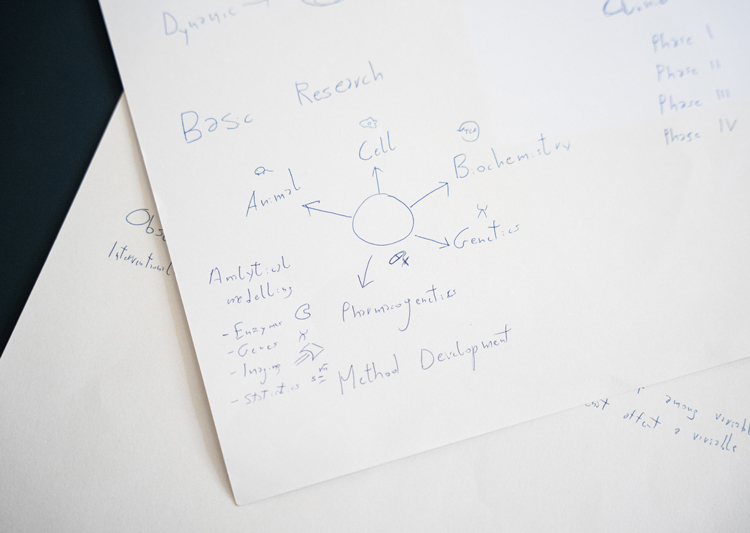 Dynamic →
Phase I
Phase II
Phase III
Phase IV
Basic Research
Cell
Biochemistry
Animal
Genetics
Analytical
modelling
Pharmacogenetics
- Enzyme
- Genes
- Imaging
- Statistics
Method Development
Interventional
among
effect a variable